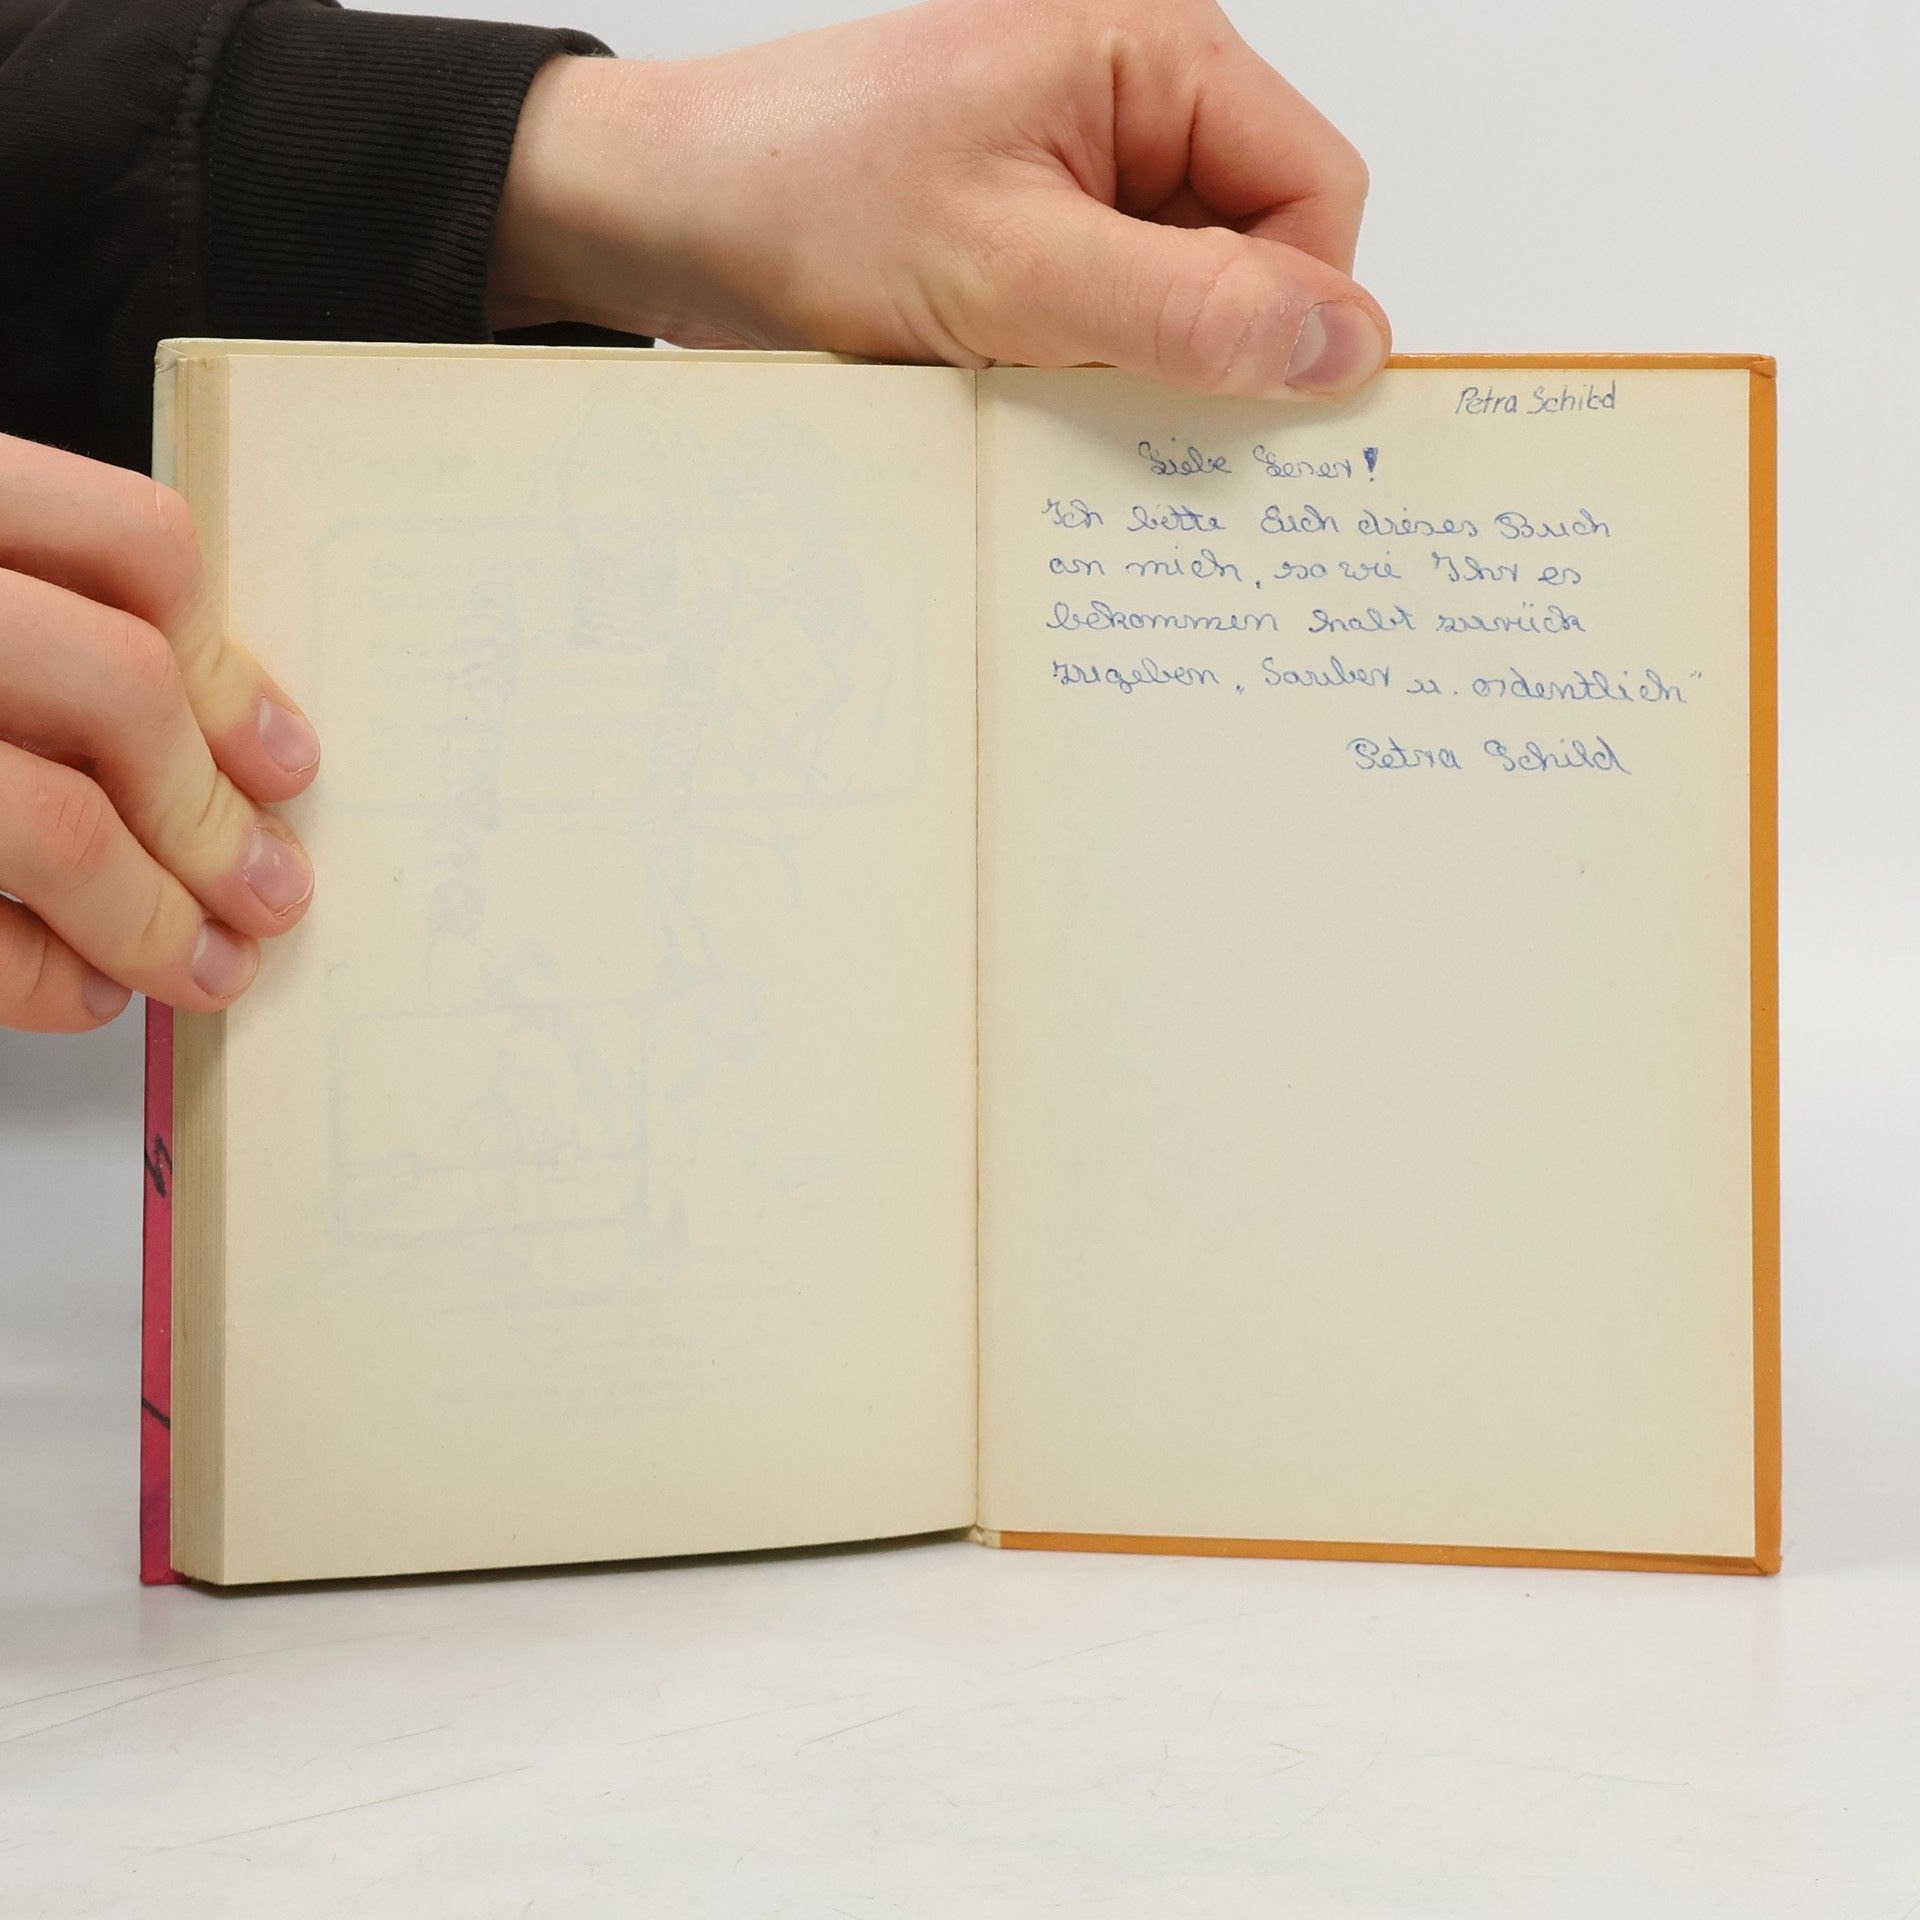 Petra Schild
Liebe Leser!
Ich bitte Euch dieses Buch
an mich, so wie Ihr es
bekommen habt zurück
zugeben „Sauber u. ordentlich"
Petra Schild